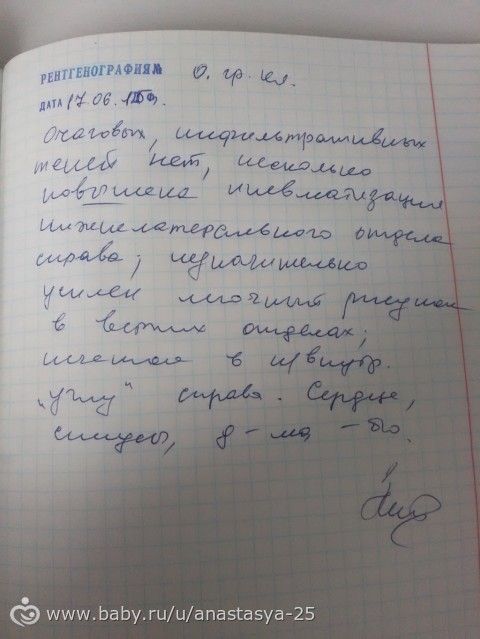 РЕНТГЕНОГРАФИЯ № О. гр. кл.
ДАТА 17.06.
Очаговых, инфильтративных
теней нет, несколько
повышена пневматизация
нижнелатерального отдела
справа; незначительно
усилен легочный рисунок
в отделах;
в н/внутр.
"углу" справа. Сердце,
синусы, д-ма, -б/о.
www.baby.ru/u/anastasya-25